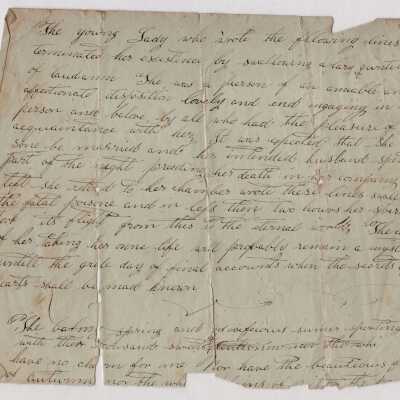 "The young Lady who wrote the following lines
terminated her existence by swallowing a large quntity
of laudanm "She was a person of an amiable and
affectionate disposition lovely and end engaging in
person and belove by all who had the pleasure of
acquaintance with her It was expected that she
sone be married and her intended husband spent
part of the night preceding her death in her company
left she retired to her chamber wrote these lines swall
the fatal poisone and in less then two hours her spirit
took its flight from this to the eternal world "The
of her taking her own life will probably remain a myst
untill the grate day of final accounts when the secrets
hearts shall be mad known
"The balmy spring and sumer sporting
with their thousands sweets
have no charm for me Nor have the beautious
autumn nor the